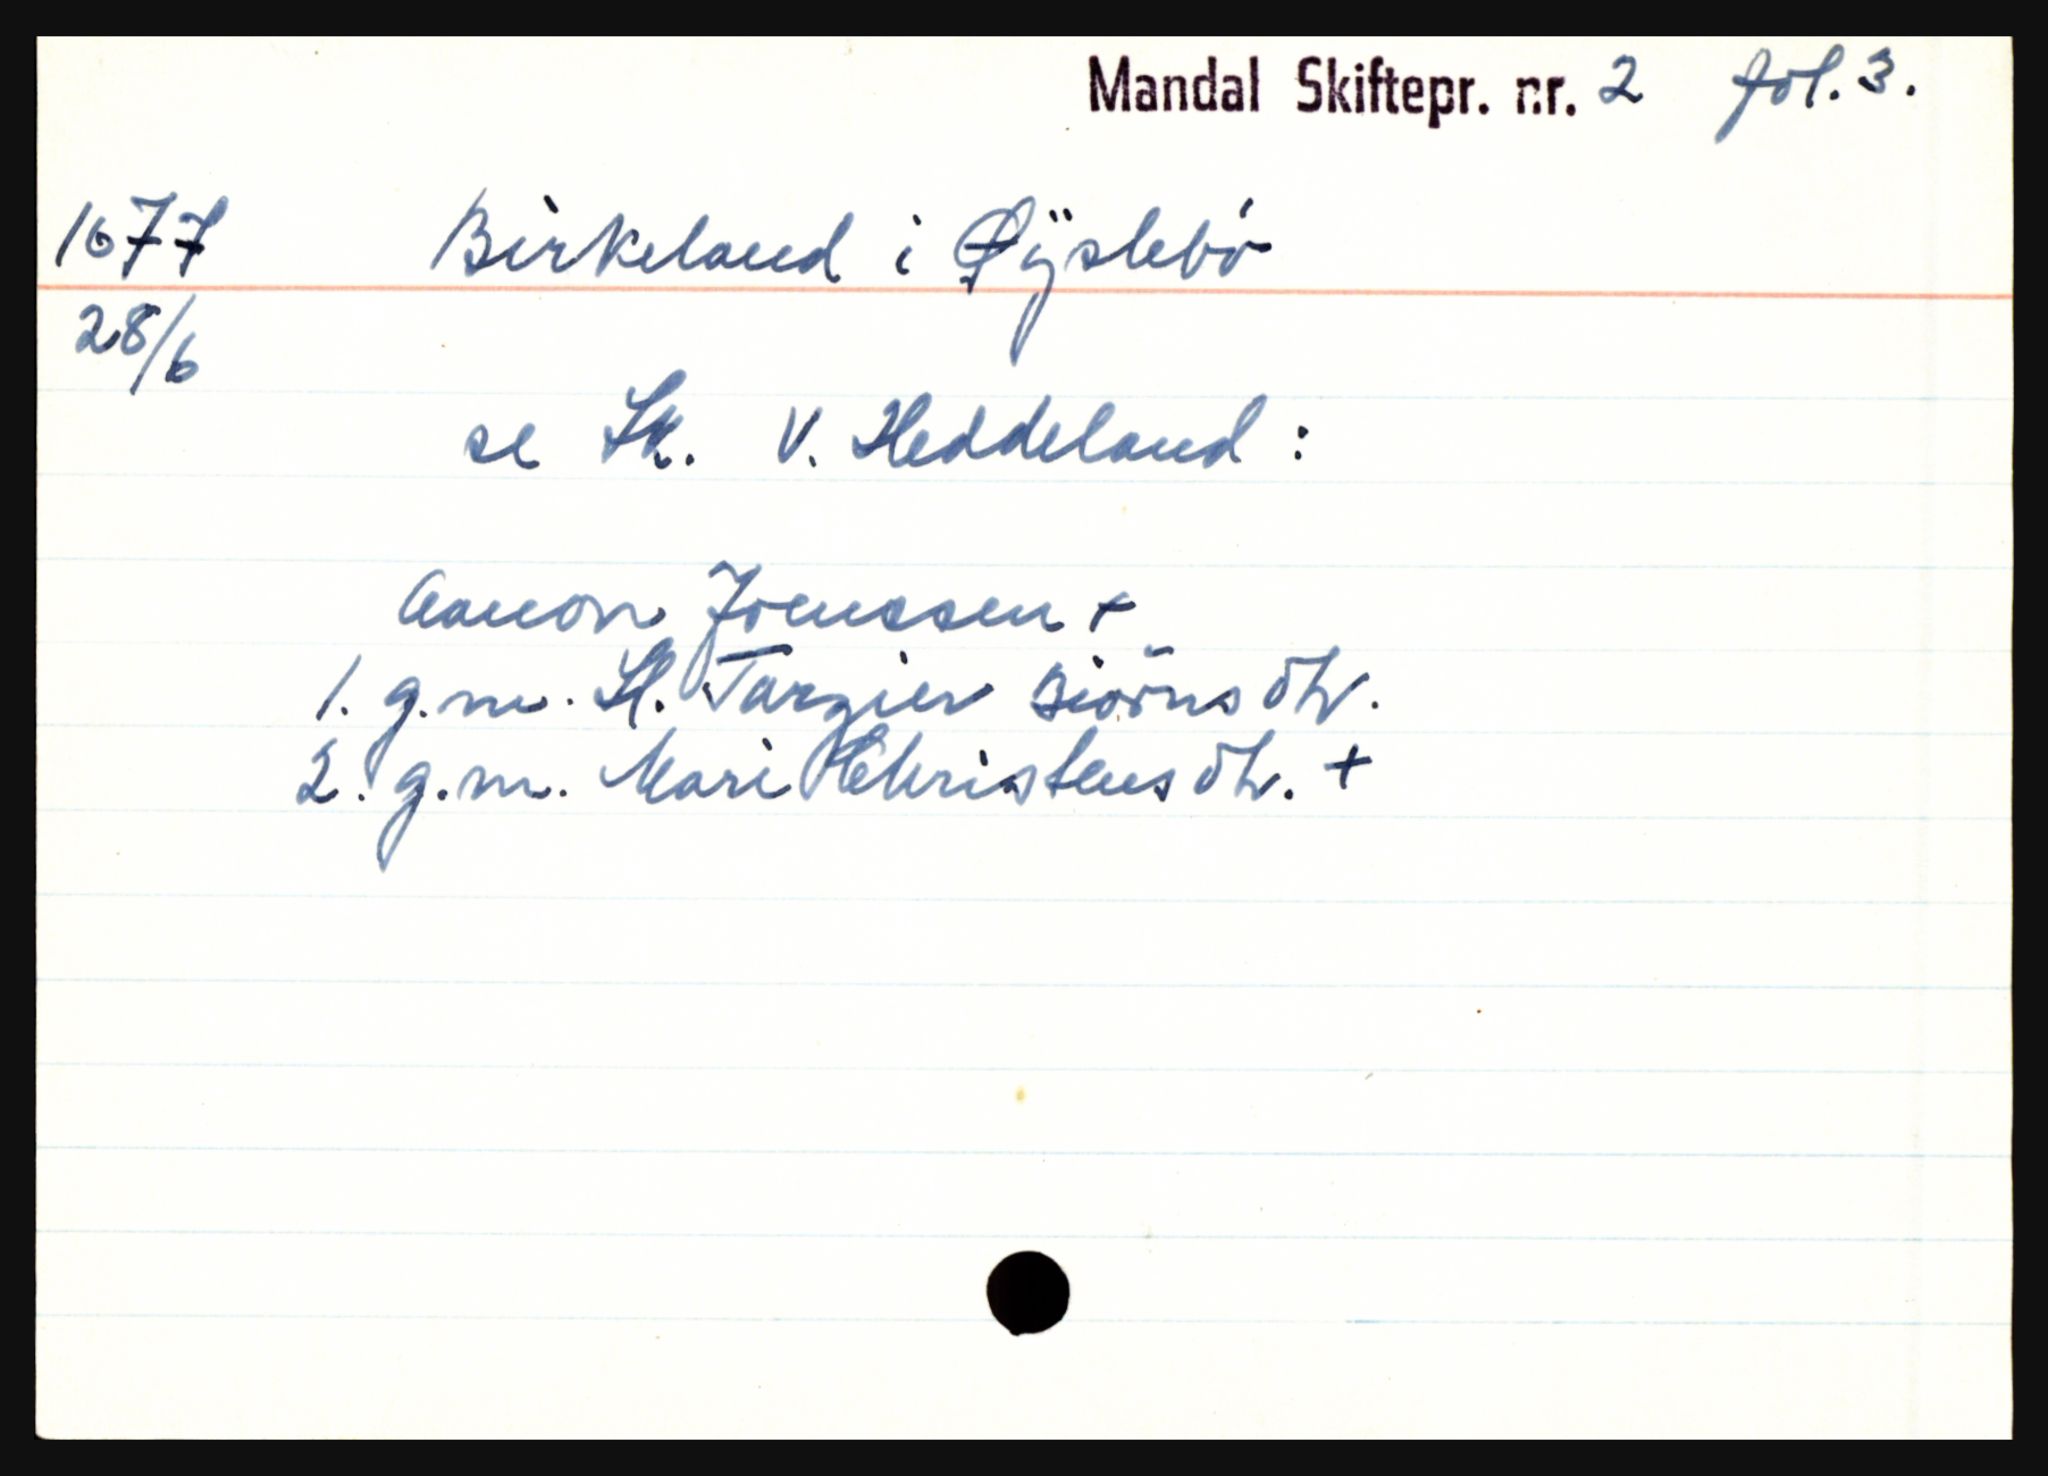 Mandal Skiftepr. nr. 2 fol. 3.
1677 Birkeland i Øÿslebö
28/6
se Sk. V. Heddeland :
Aanon Joenssen +
1. g.m. Sl. Targier Biörns dtr.
2. g.m. Mari Christens dtr. +